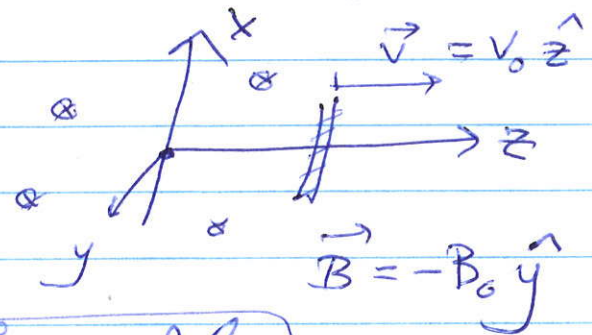 x
v⃗ = v₀ ẑ
z
y
B⃗ = -B₀ ŷ